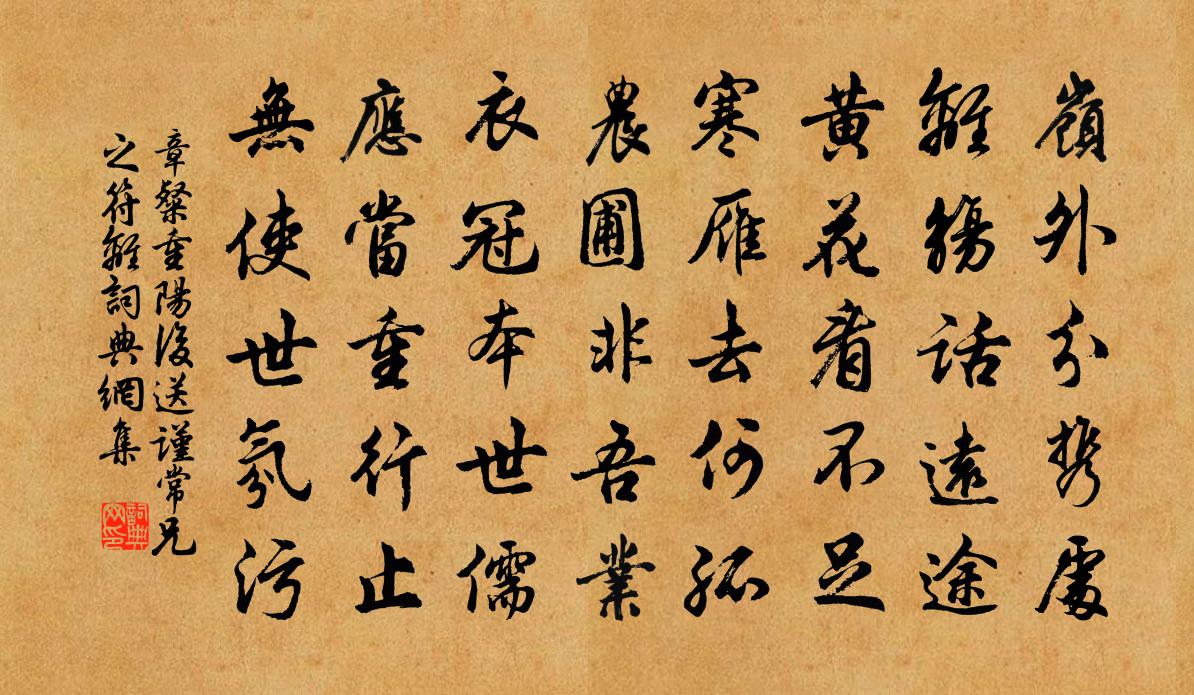 嶺外分携處
離觴話遠途
黃花看不足
寒雁去何孤
農圃非吾業
衣冠本世儒
應當重行止
無使世氛污
章粲重陽後送謹常兄
之符離詞典網集
詞典
网印